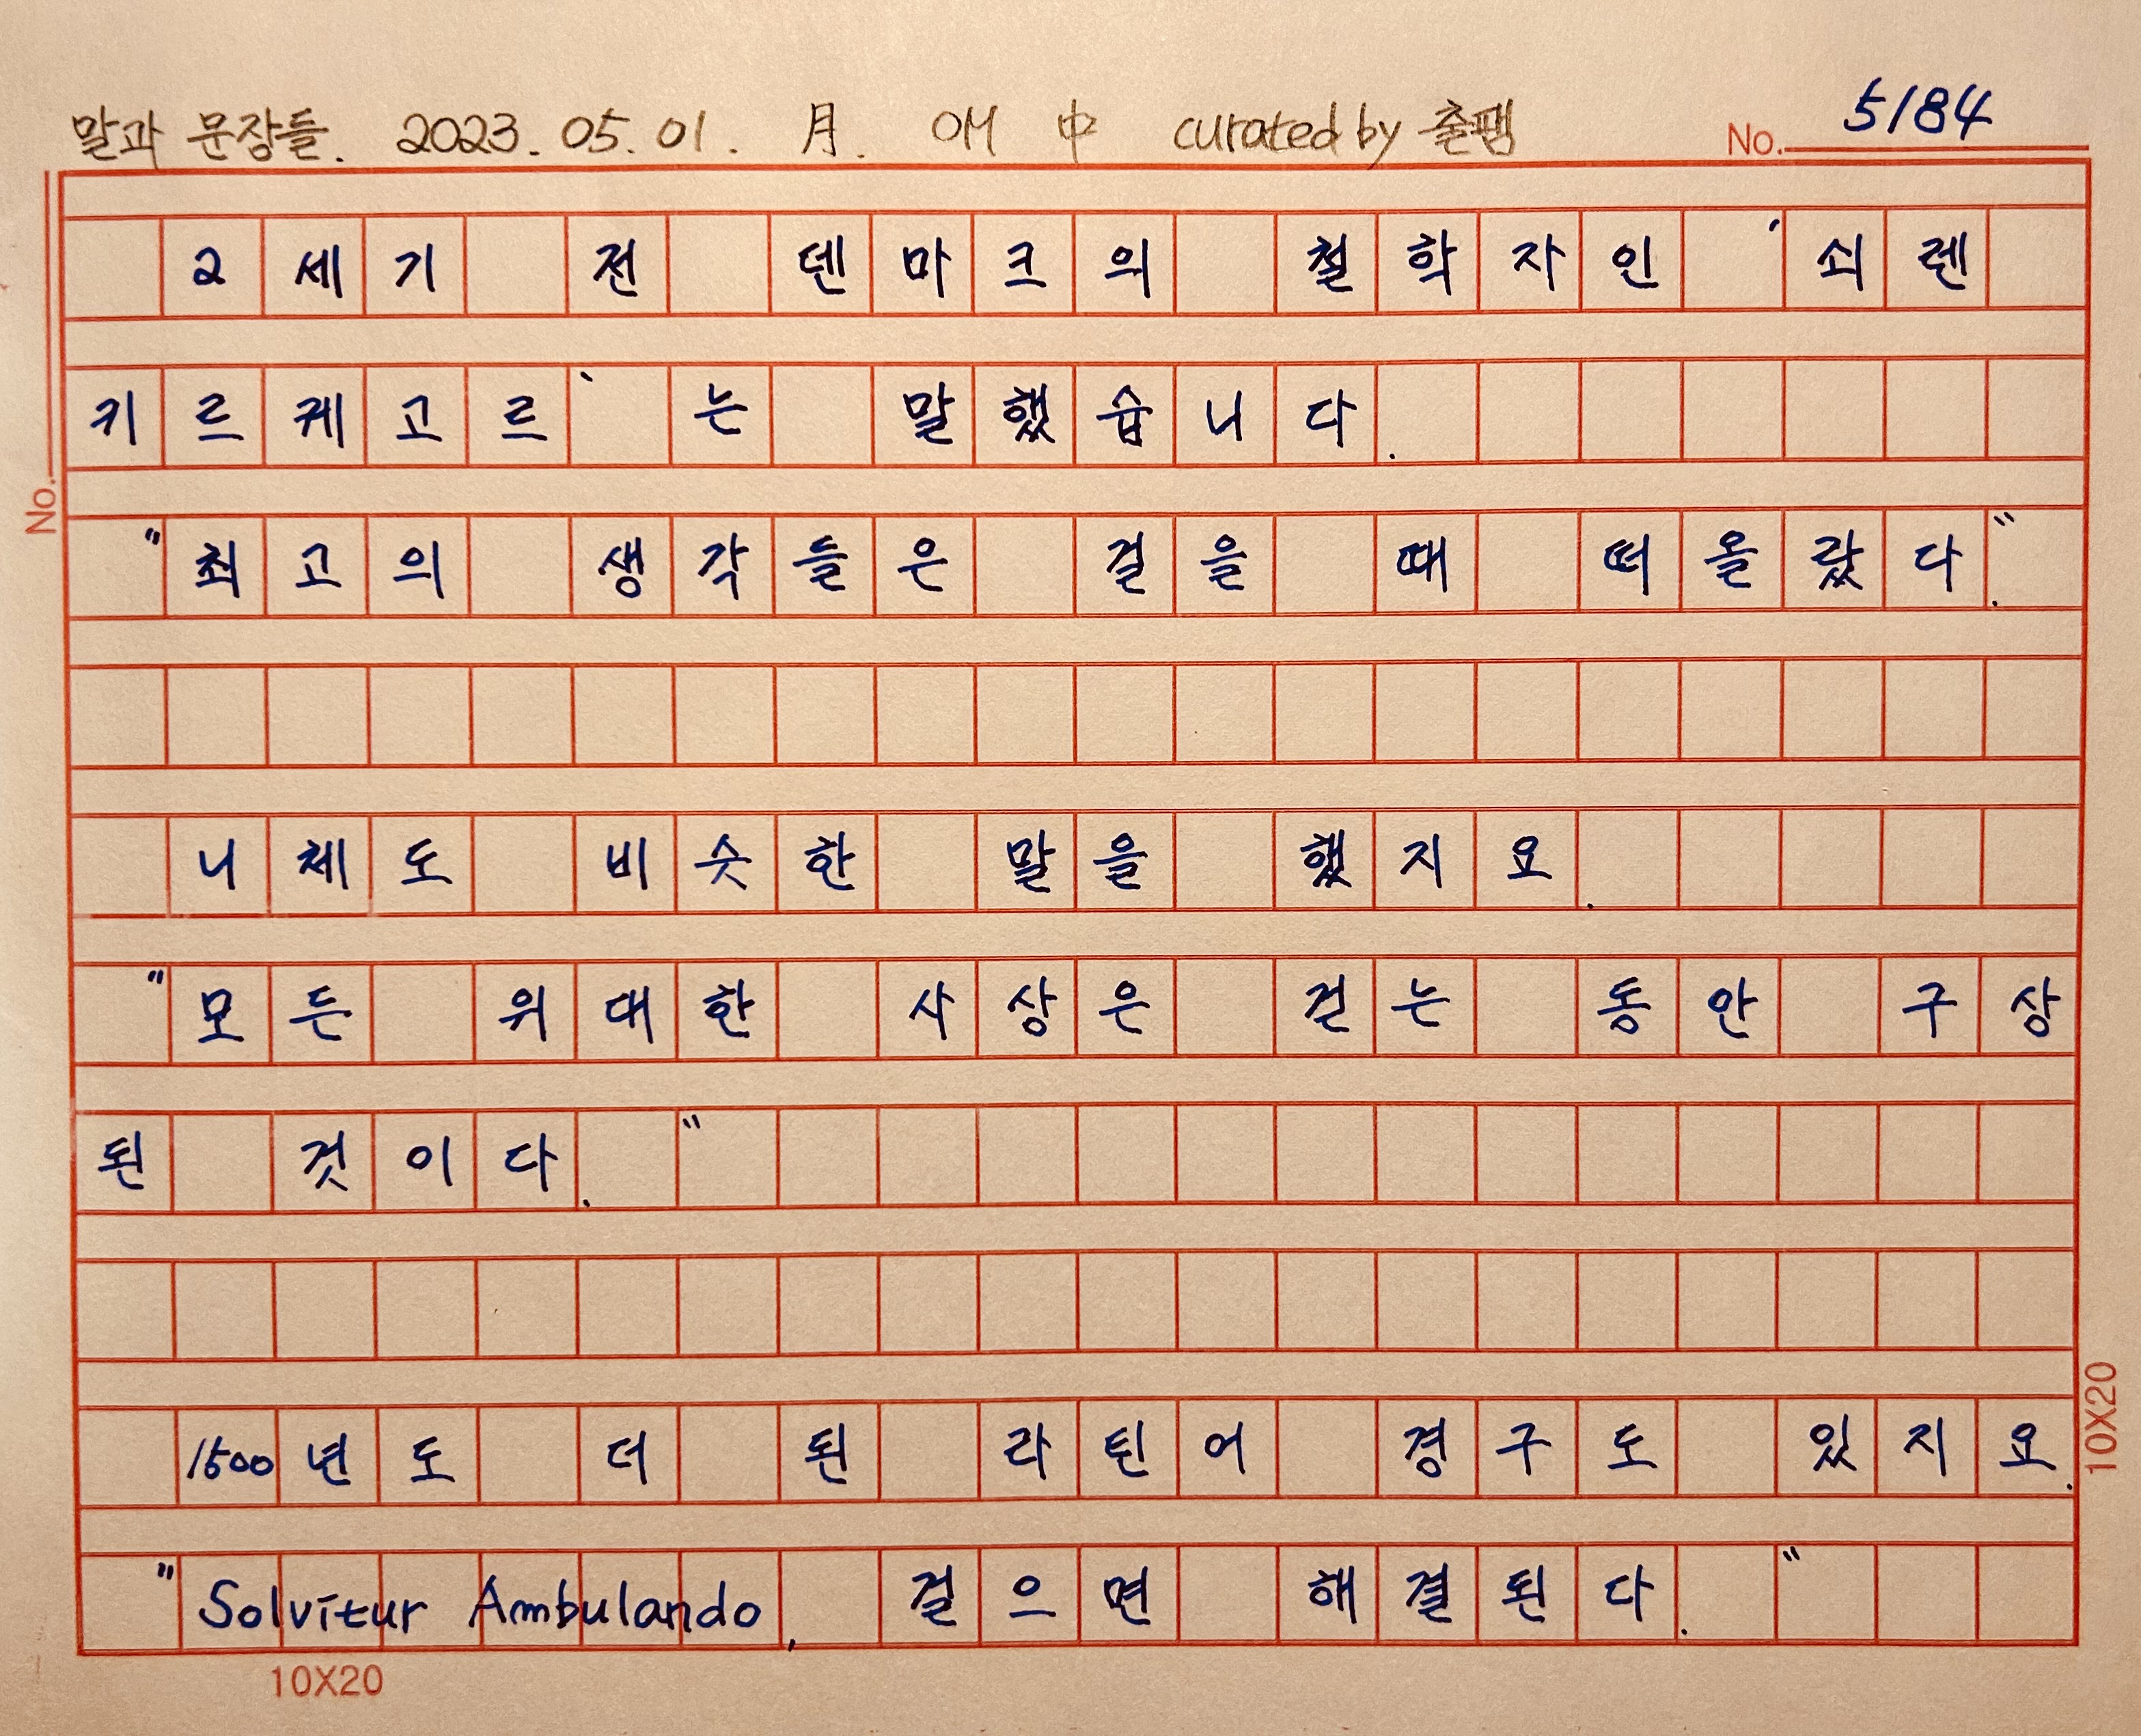 말과 문장들. 2023. 05. 01. 月. OM 中 curated by 줄팸 No. 5184
2세기 전 덴마크의 철학자인 '쇠렌
키르케고르'는 말했습니다.
No.
"최고의 생각들은 걸을 때 떠올랐다."
니체도 비슷한 말을 했지요.
"모든 위대한 사상은 걷는 동안 구상
된 것이다."
1500년도 더 된 라틴어 경구도 있지요.
"Solvitur Ambulando, 걸으면 해결된다."
10X20
10X20